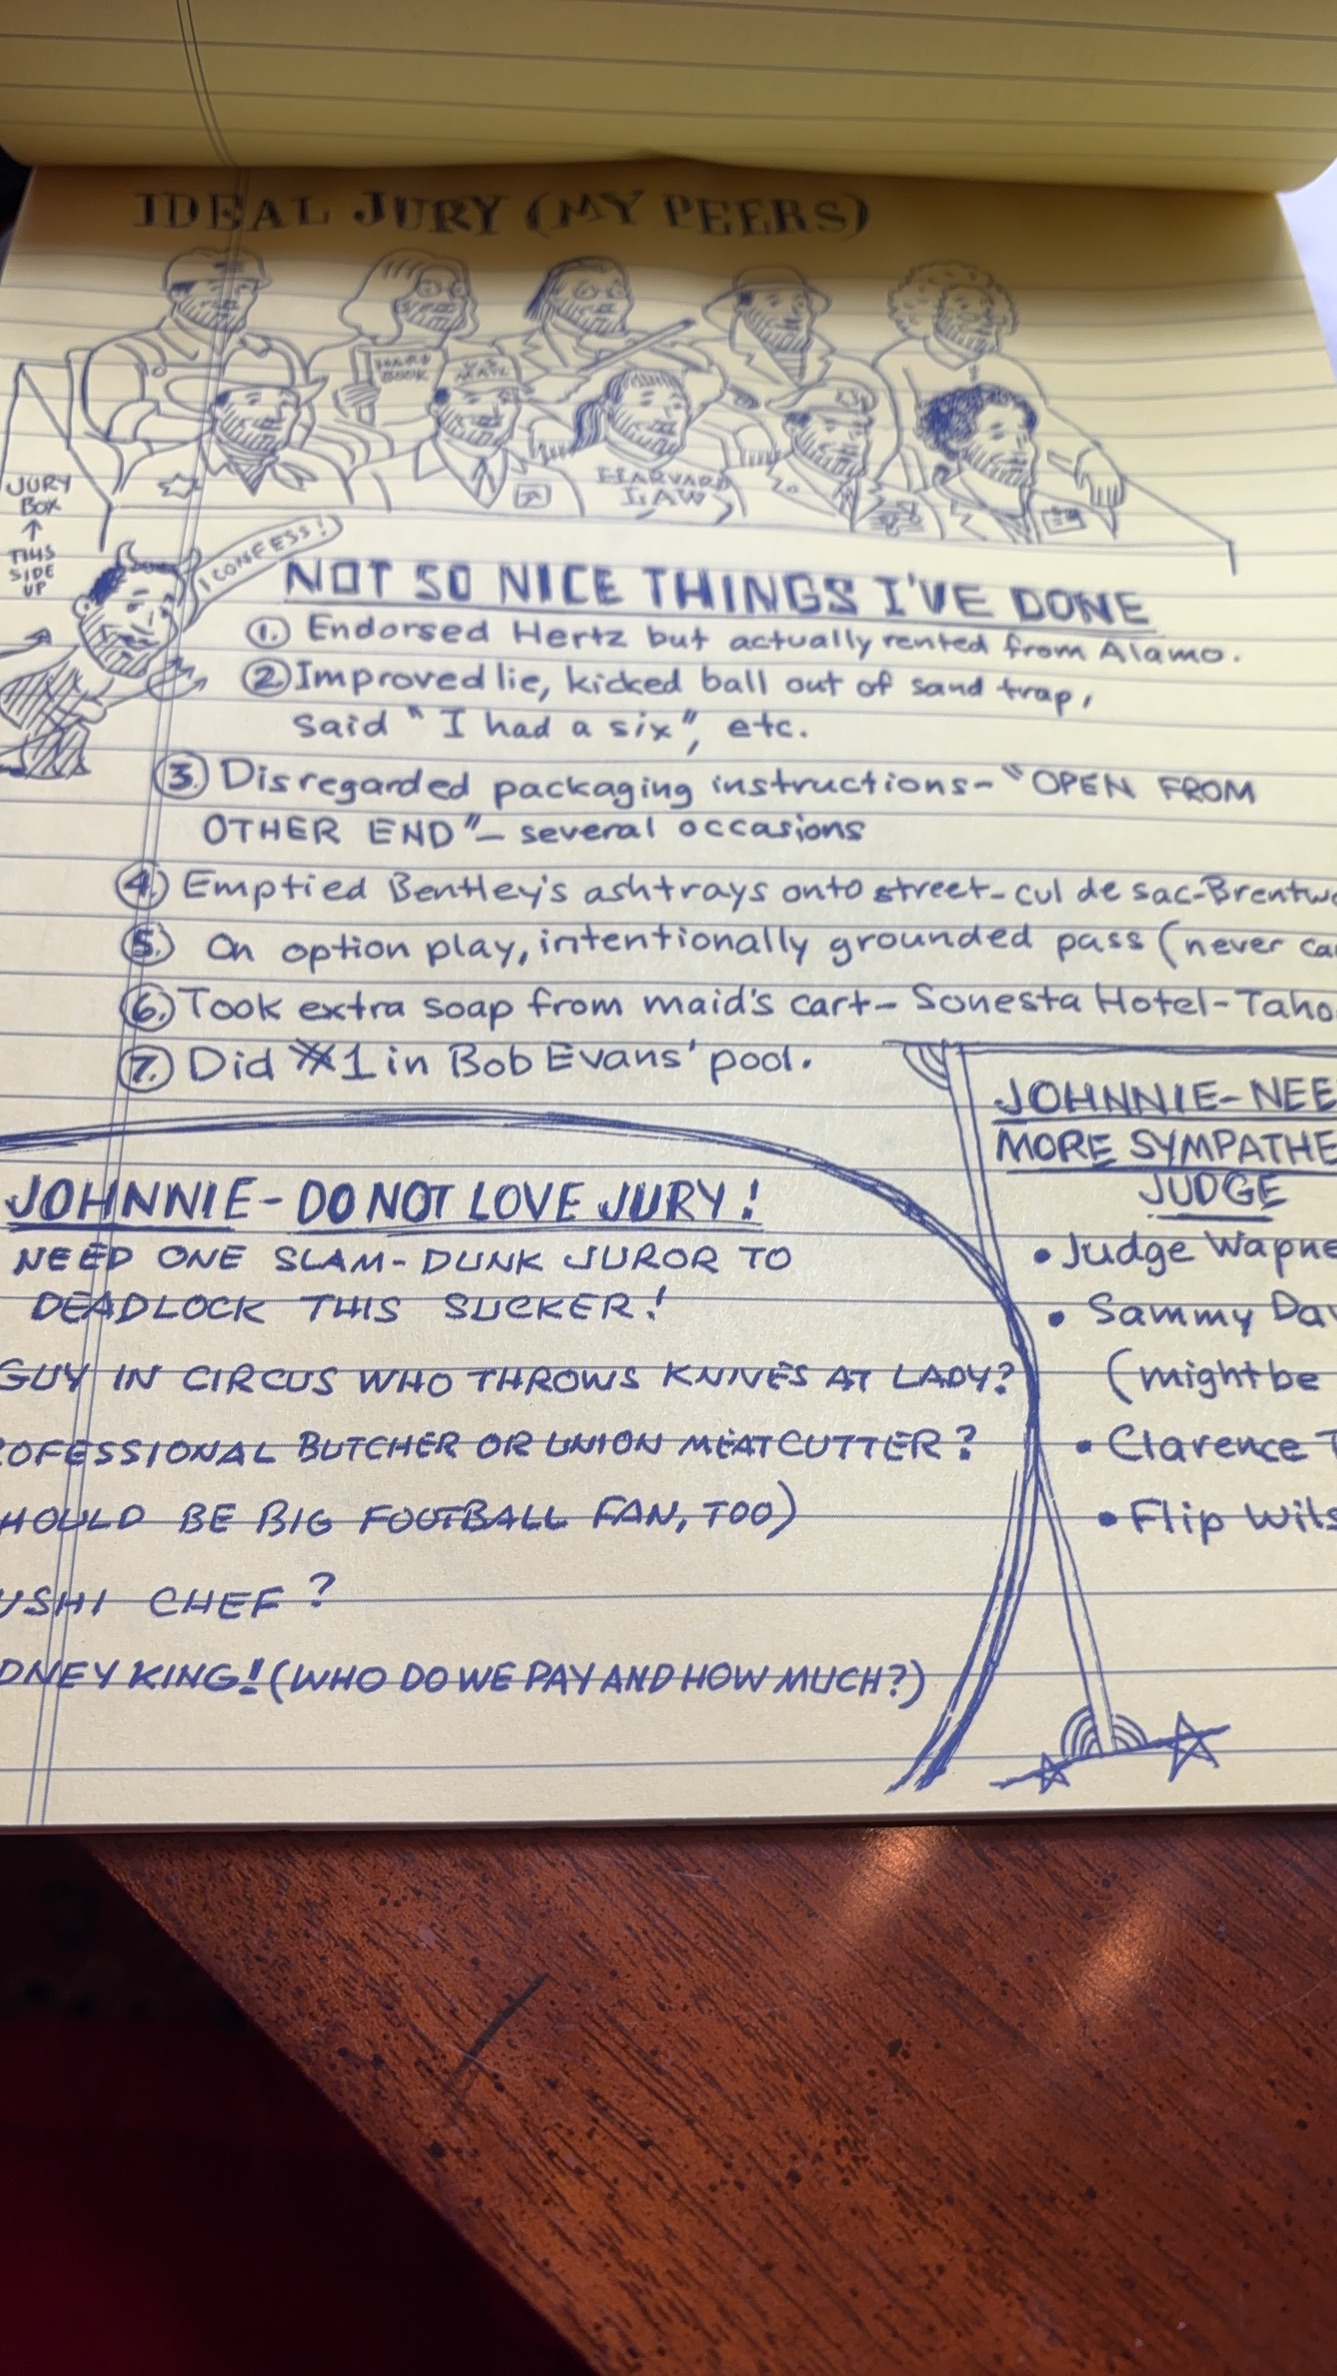 IDEAL JURY (MY PEERS)
HARVARD
LAW
JURY
BOX
THIS
SIDE
UP
I CONFESS!
NOT SO NICE THINGS I'VE DONE
1. Endorsed Hertz but actually rented from Alamo.
2. Improved lie, kicked ball out of sand trap,
said "I had a six", etc.
3. Disregarded packaging instructions- "OPEN FROM
OTHER END"- several occasions
4. Emptied Bentley's ashtrays onto street- cul de sac-Brentwo
5. On option play, intentionally grounded pass (never ca
6. Took extra soap from maid's cart- Sonesta Hotel-Taho
7. Did #1 in Bob Evans' pool.
JOHNNIE- DO NOT LOVE JURY!
NEED ONE SLAM-DUNK JUROR TO
DEADLOCK THIS SUCKER!
GUY IN CIRCUS WHO THROWS KNIVES AT LADY?
OFESSIONAL BUTCHER OR UNION MEATCUTTER?
HOULD BE BIG FOOTBALL FAN, TOO)
USHI CHEF?
DNEY KING! (WHO DO WE PAY AND HOW MUCH?)
JOHNNIE-NEE
MORE SYMPATHE
JUDGE
• Judge Wapne
• Sammy Dav
(might be
• Clarence T
• Flip Wils